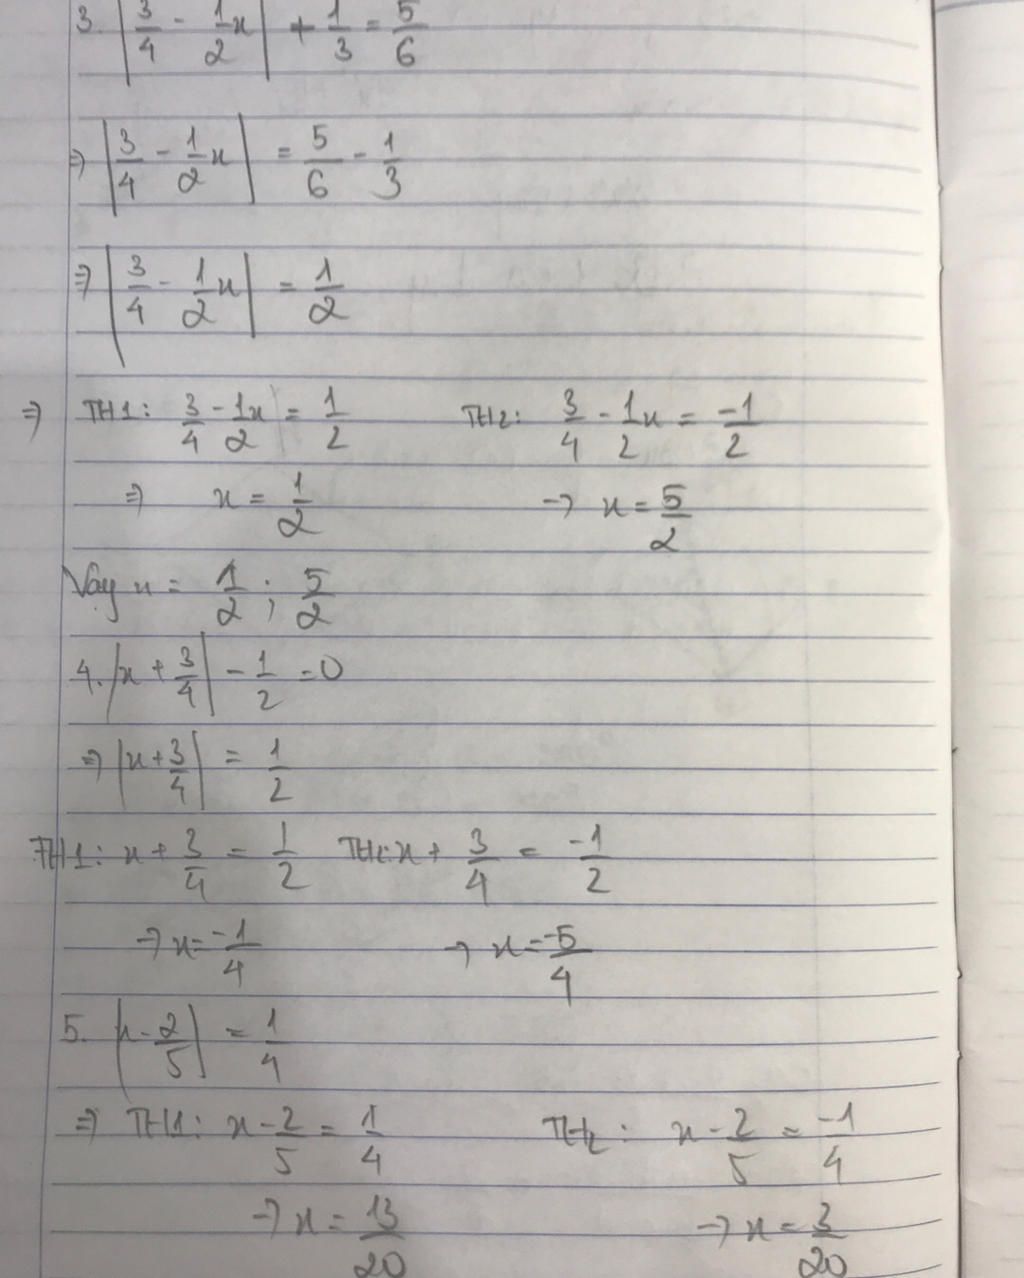 3. |3/4 - 1/2x| + 1/3 = 5/6
⇒ |3/4 - 1/2x| = 5/6 - 1/3
⇒ |3/4 - 1/2x| = 1/2
⇒ TH1: 3/4 - 1/2x = 1/2 TH2: 3/4 - 1/2x = -1/2
⇒ x = 1/2 → x = 5/2
Vay x = 1/2 ; 5/2
4. |x + 3/4| - 1/2 = 0
⇒ |x + 3/4| = 1/2
TH1: x + 3/4 = 1/2 TH2: x + 3/4 = -1/2
→ x = -1/4 → x = -5/4
5. |x - 2/5| = 1/4
⇒ TH1: x - 2/5 = 1/4 TH2: x - 2/5 = -1/4
→ x = 13/20 → x = 3/20